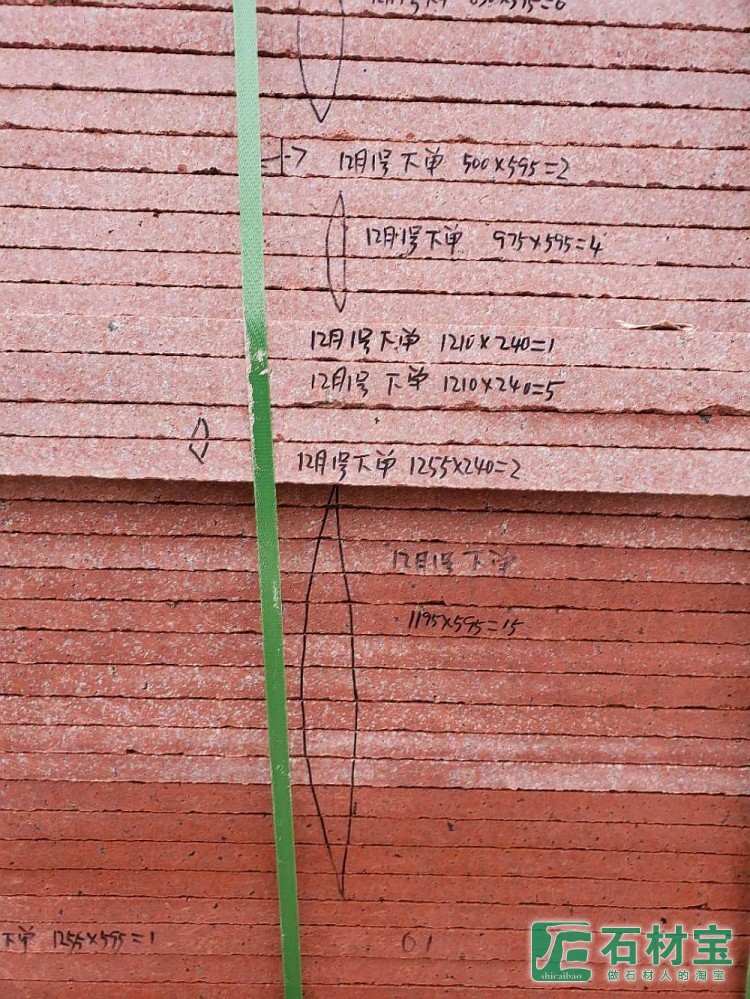 12月1号下单 500×595=2
12月1号下单 975×595=4
12月1号下单 1210×240=1
12月1号下单 1210×240=5
12月1号下单 1255×240=2
12月1号下单
1195×595=15
下单 1255×595=1
石材宝
shicaibao
做石材人的淘宝